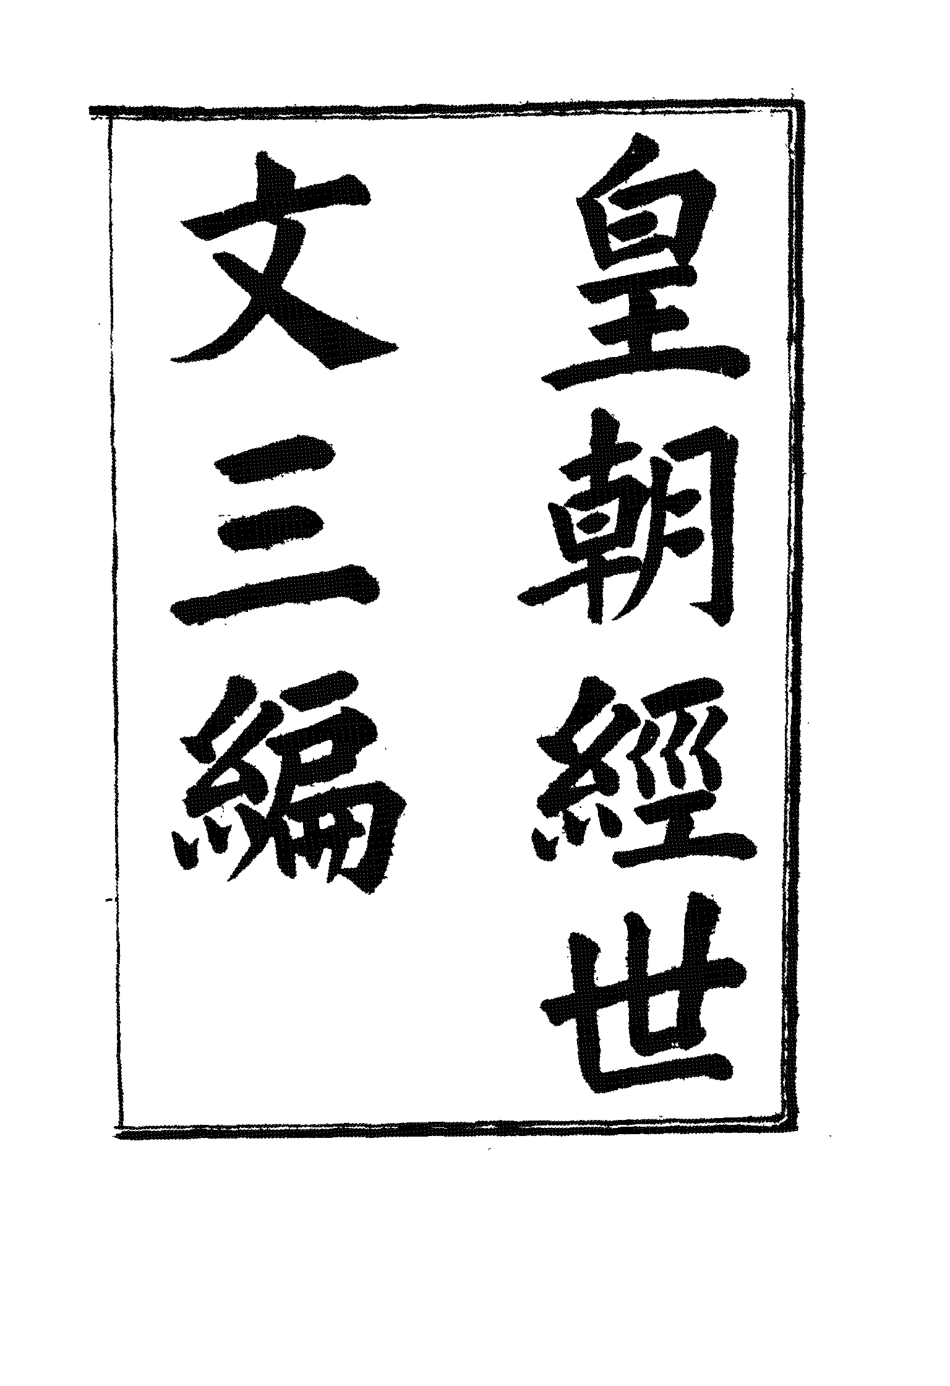 皇朝經世
文三編